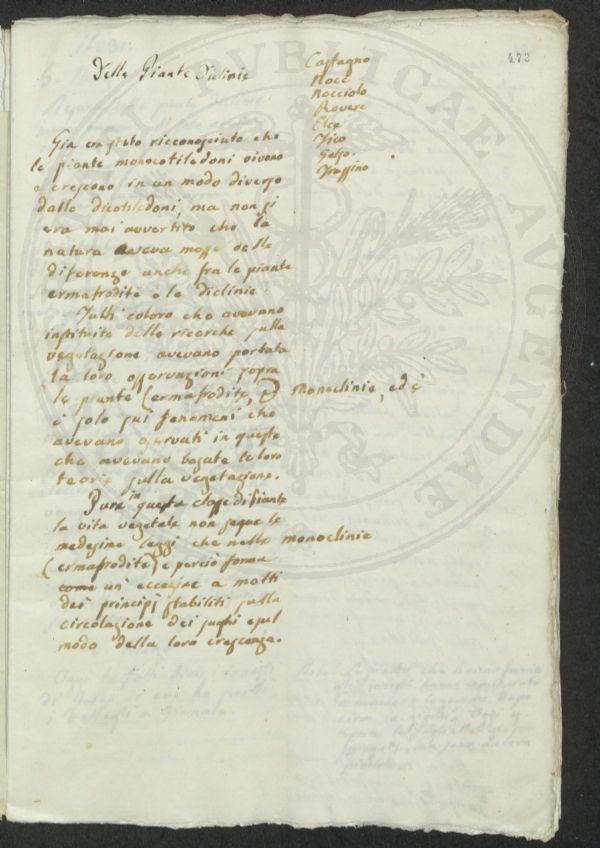 473
Delle Piante Diclinie
Castagno
Noce
Nocciolo
Rovere
Elce
Fico
Gelso.
Frassino
Gia era stato ricconosciuto che
le piante monocotiledoni vivono
e crescono in un modo diverso
dalle dicotiledoni, ma non si
era mai avvertito che la
natura aveva messe delle
diferenze anche fra le piante
ermafrodite e le diclinie.
Tutti coloro che avevano
instituite delle ricerche sulla
vegetazione avevano portata
la loro osservazioni sopra
le piante (ermafrodite, e) monoclinie, ed è
è solo sui fenomeni che
avevano osservati in queste
che avevano basate le loro
teorie sulla vegetazione.
Pure in questa classe di piante
la vita vegetale non segue le
medesime leggi che nelle monoclinie
(ermafrodite) e perciò forma
come un' eccezine a molti
dei principj stabiliti sulla
circolazione dei sughi e sul
modo della loro crescenza.